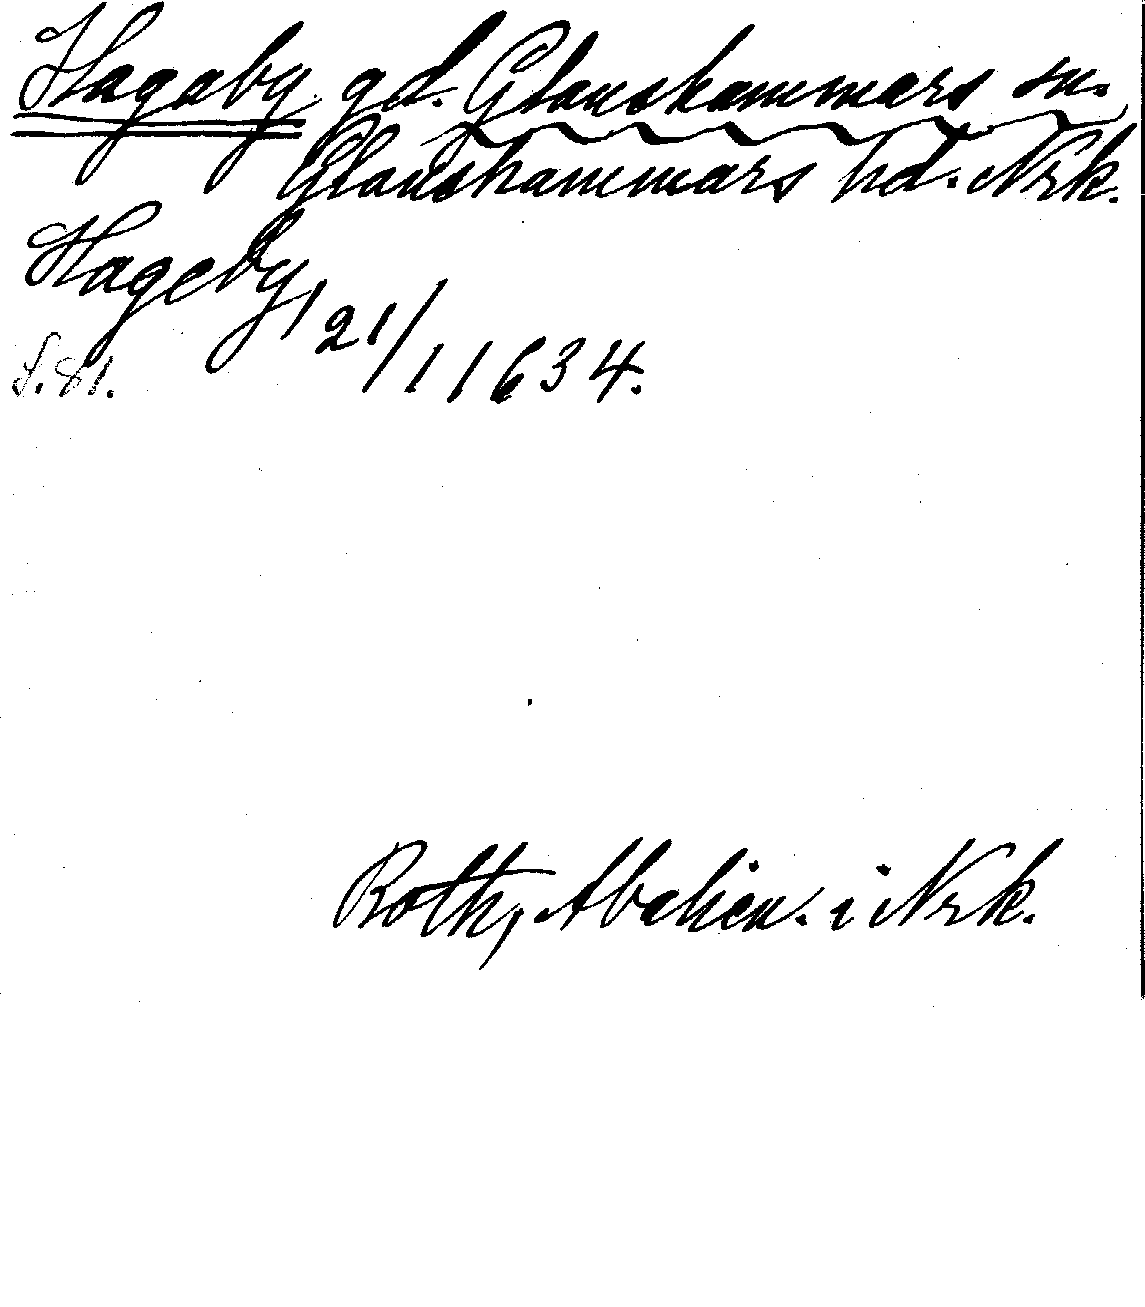 Hagaby gd. Glanshammars sn.
Glanshammars hd. Nrk.
Hageby, 21/1 1634.
S. 81.
Roth, Abelien. i Nrk.